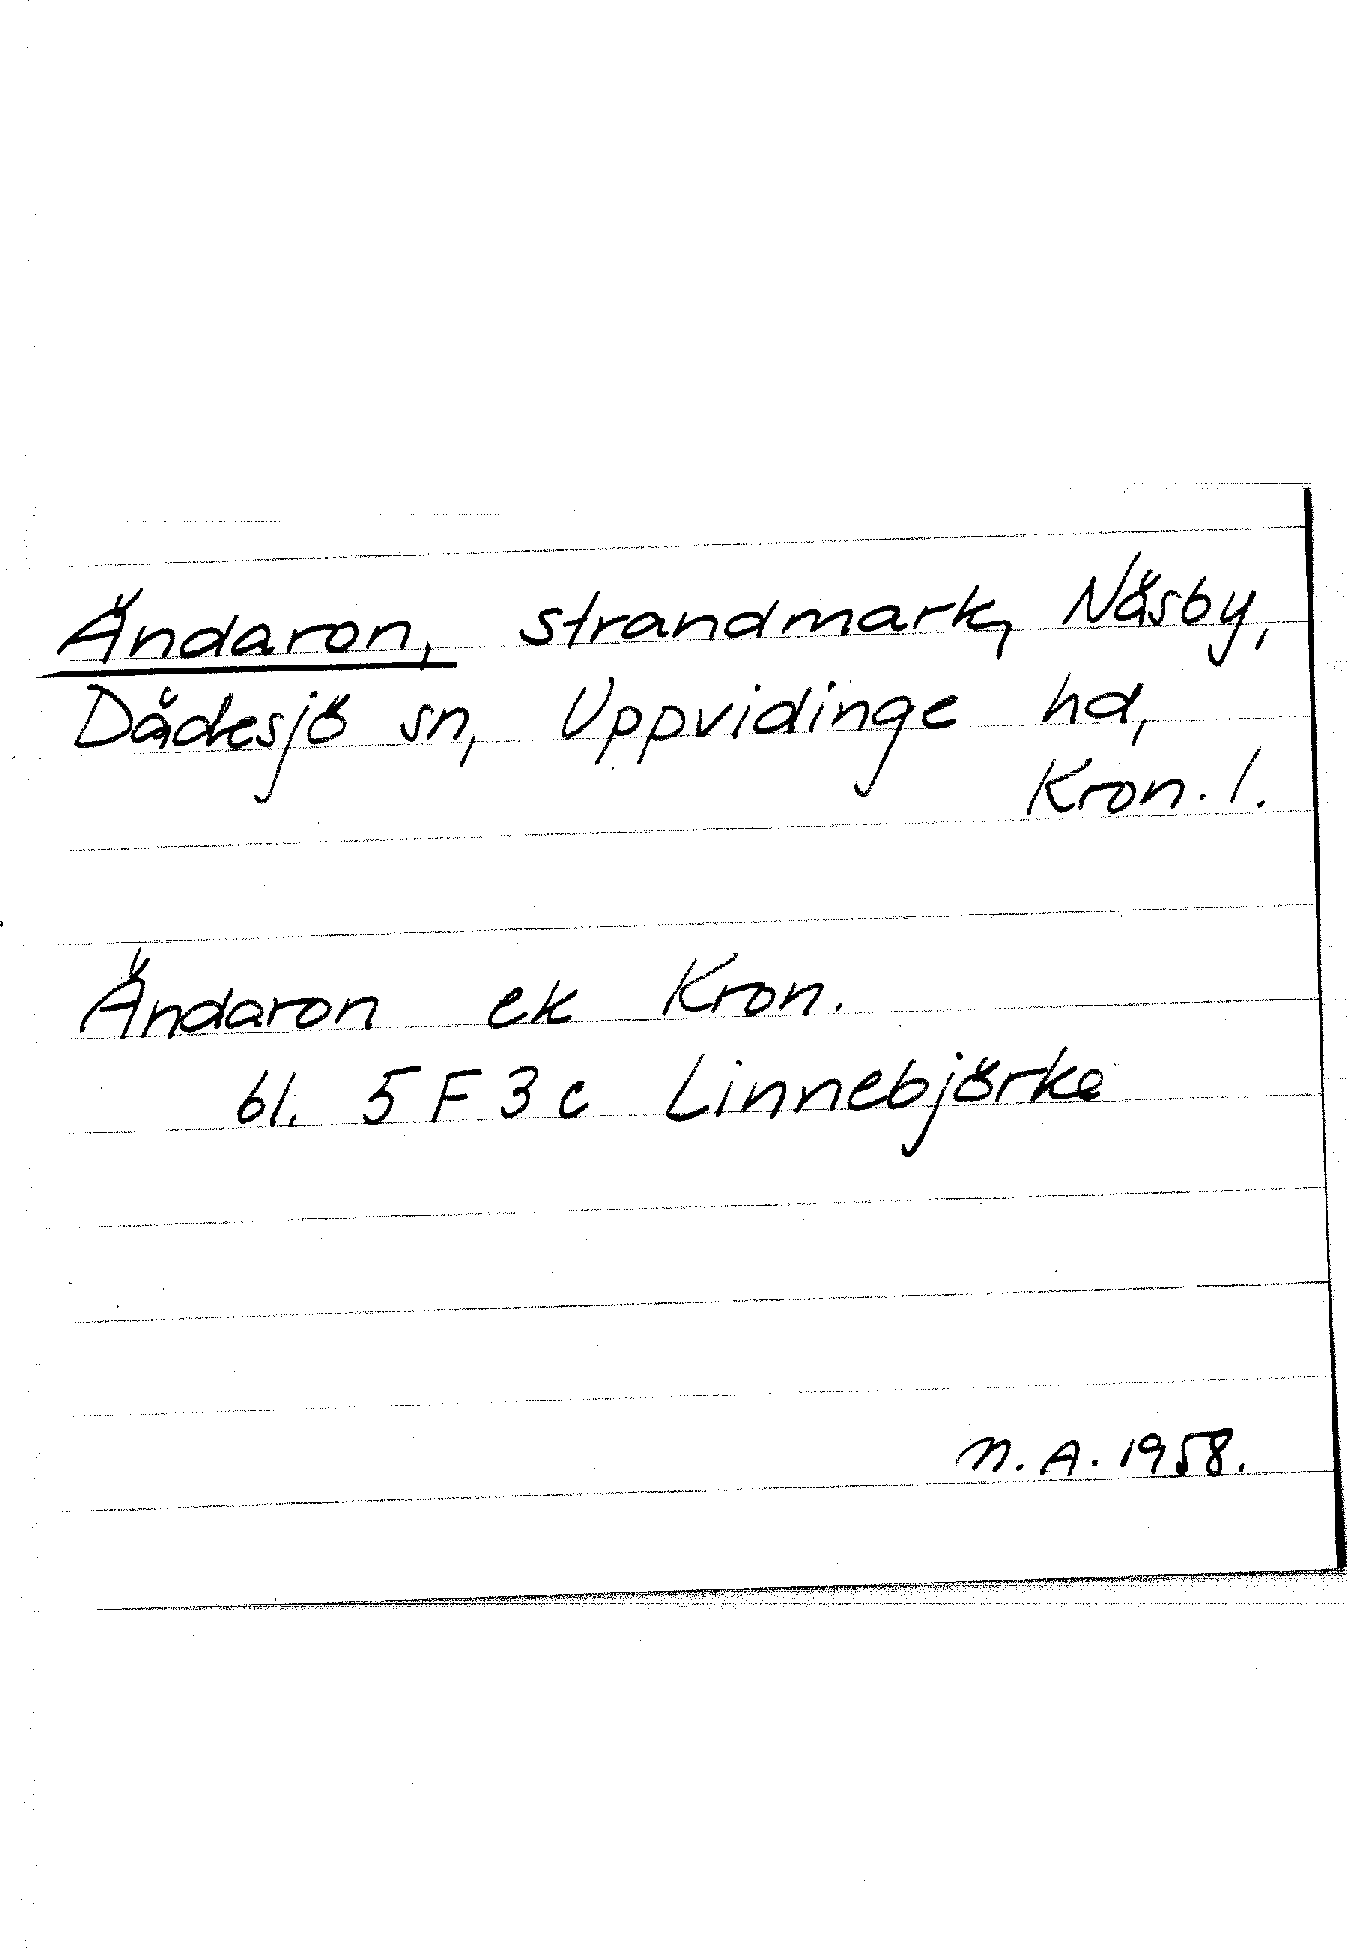 Ändaron, strandmark, Näsby,
Dädesjö sn, Uppvidinge hd,
Kron. l.
Ändaron ek Kron.
bl. 5 F 3 c Linnebjörke
N. A. 1958.